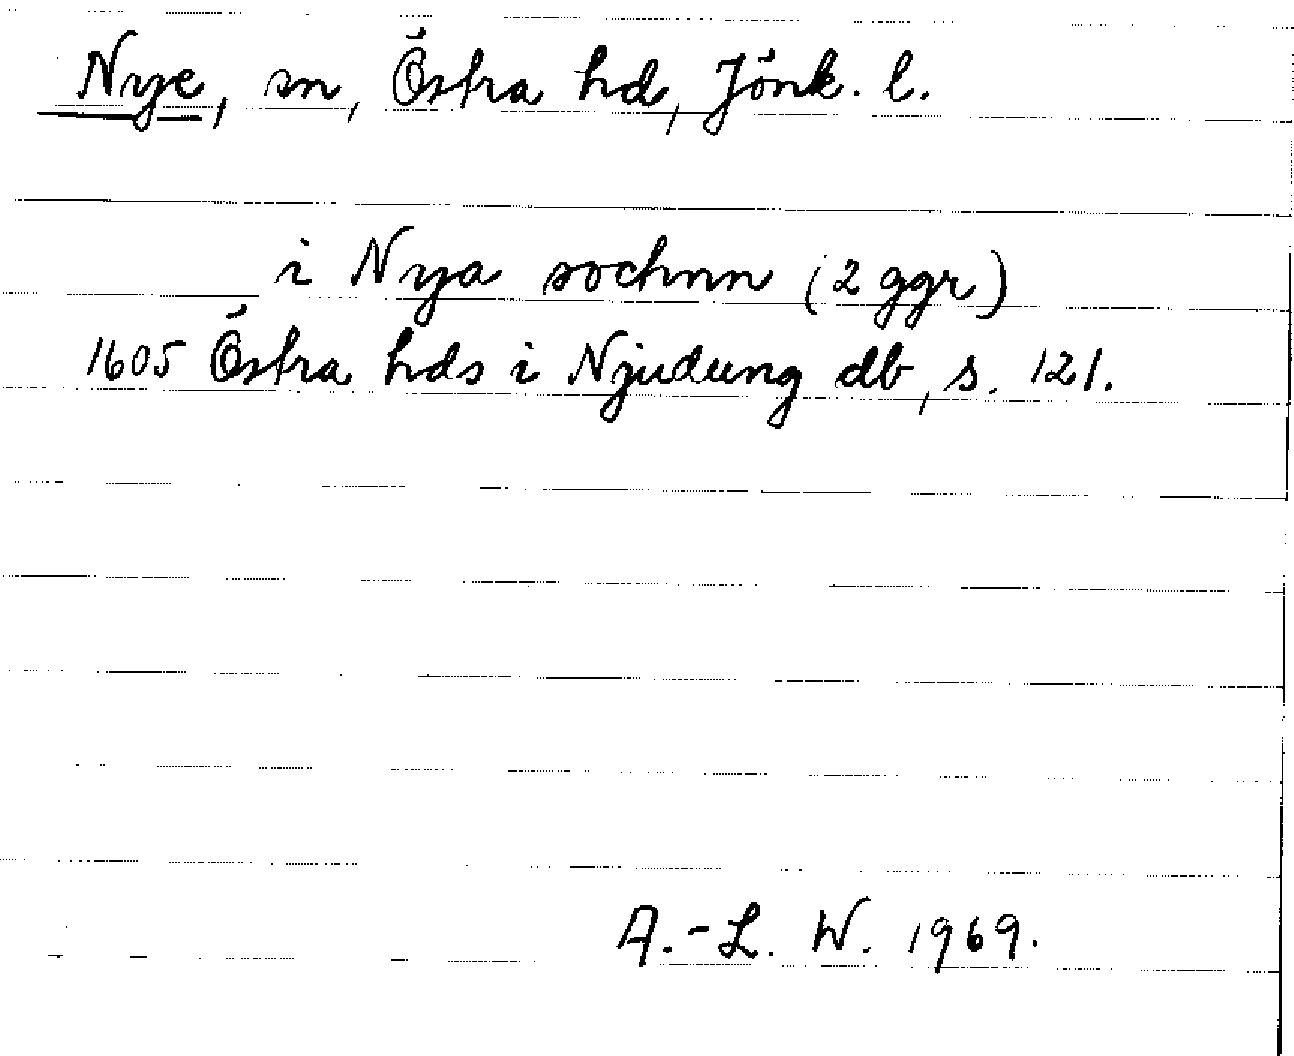 Nye, sn, Östra hd, Jönk. l.
i Nya sochnn (2 ggr)
1605 Östra hds i Njudung db, s. 121.
A.-L. W. 1969.